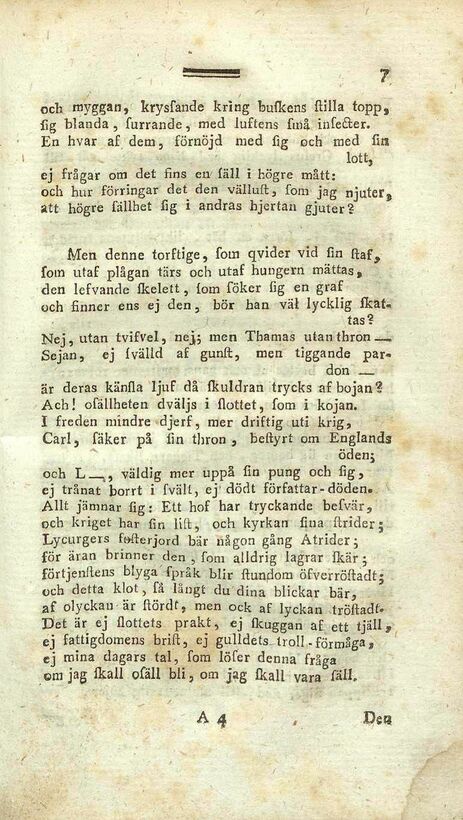 7
och myggan, kryſſande kring buſkens ſtilla topp,
ſig blanda, ſurrande, med luftens ſmå inſecter.
En hvar af dem, förnöjd med ſig och med ſin
lott,
ej frågar om det fins en ſäll i högre mått:
och hur förringar det den välluſt, ſom jag njuter,
att högre ſällhet ſig i andras hjertan gjuter?
Men denne torftige, ſom qvider vid ſin ſtaf,
ſom utaf plågan tärs och utaf hungern mättas,
den lefvande ſkelett, ſom ſöker ſig en graf
och finner ens ej den, bör han väl lycklig ſkat-
tas?
Nej, utan tvifvel, nej; men Thamas utan thron —
Sejan, ej ſvälld af gunſt, men tiggande par-
don —
är deras känſla ljuf då ſkuldran trycks af bojan?
Ach! oſällheten dväljs i ſlottet, ſom i kojan.
I freden mindre djerf, mer driftig uti krig,
Carl, ſäker på ſin thron, beſtyrt om Englands
öden;
och L—, väldig mer uppå ſin pung och ſig,
ej trånat borrt i ſvält, ej dödt författar-döden.
Allt jämnar ſig: Ett hof har tryckande beſvär,
och kriget har ſin liſt, och kyrkan ſina ſtrider;
Lycurgers foſterjord bär någon gång Atrider;
för äran brinner den, ſom alldrig lagrar ſkär;
förtjenſtens blyga ſpråk blir ſtundom öfverröſtadt;
och detta klot, ſå långt du dina blickar bär,
af olyckan är ſtördt, men ock af lyckan tröſtadt.
Det är ej ſlottets prakt, ej ſkuggan af ett tjäll,
ej fattigdomens briſt, ej gulldets troll-förmåga,
ej mina dagars tal, ſom löſer denna fråga
om jag ſkall oſäll bli, om jag ſkall vara ſäll.
A 4 Den